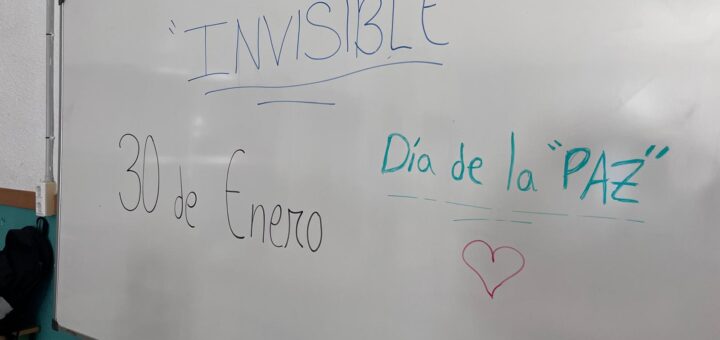 "INVISIBLE
30 de Enero
Día de la "PAZ"